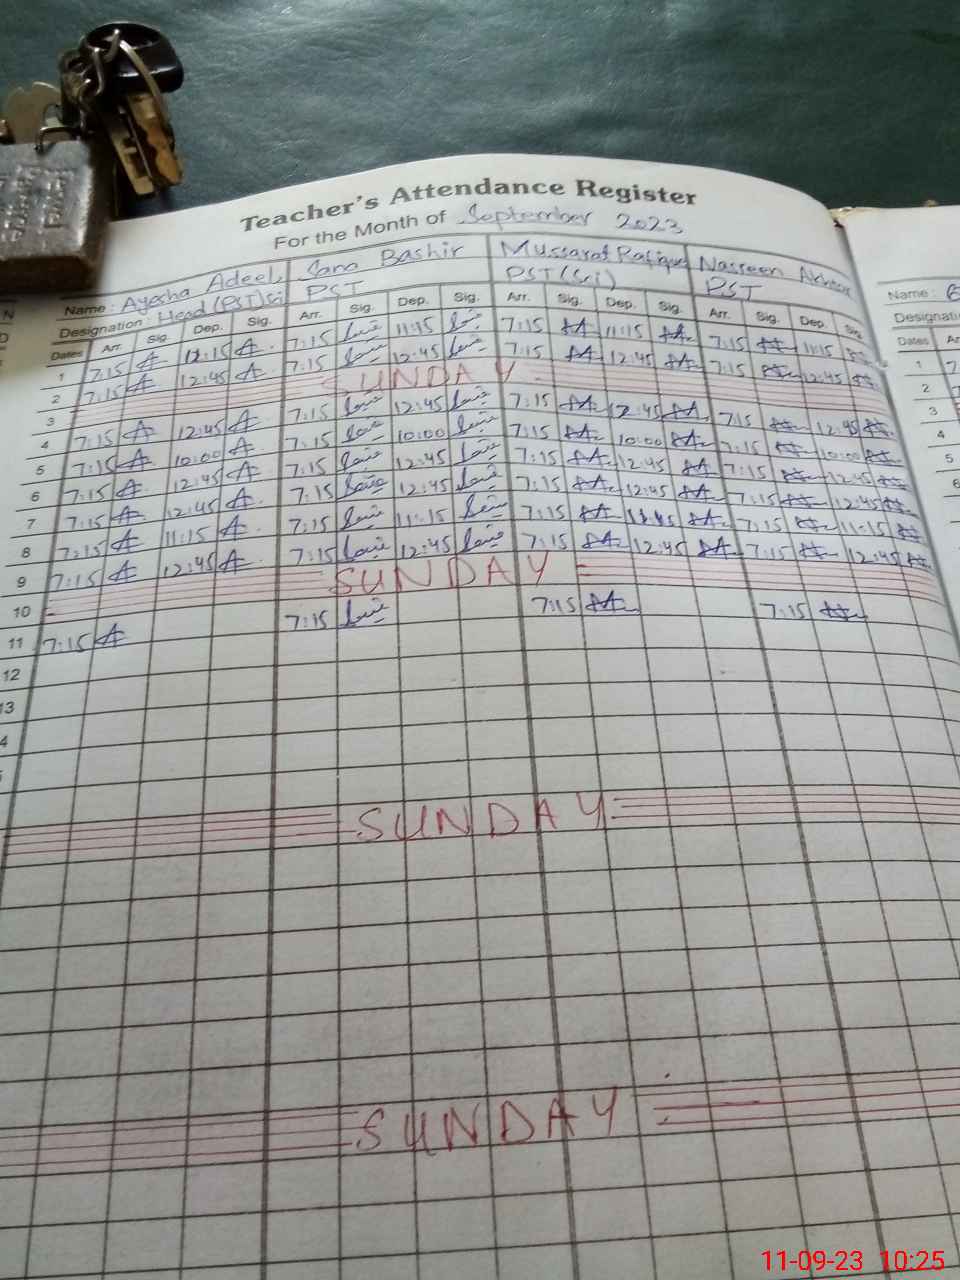 Teacher's Attendance Register
For the Month of September 2023
Name : Ayesha Adeel. Sana Bashir Mussarat Rafique Nasreen Akhtar
Designation : Head (PST) Sci PST PST (Sci) PST
Dates Arr. Sig. Dep. Sig. Arr. Sig. Dep. Sig. Arr. Sig. Dep. Sig. Arr. Sig. Dep. Sig.
1 7:15 A 12:15 A 7:15 11:15 7:15 11:15 7:15 11:15
2 7:15 A 12:45 A 7:15 12:45 7:15 12:45 7:15 12:45
3 SUNDAY
4 7:15 A 12:45 A 7:15 12:45 7:15 12:45 7:15 12:45
5 7:15 A 10:00 A 7:15 10:00 7:15 10:00 7:15 10:00
6 7:15 A 12:45 A 7:15 12:45 7:15 12:45 7:15 12:45
7 7:15 A 12:45 A 7:15 12:45 7:15 12:45 7:15 12:45
8 7:15 A 11:15 A 7:15 11:15 7:15 7:15 11:15
9 7:15 A 12:45 A 7:15 12:45 7:15 12:45 7:15 12:45
10 SUNDAY
11 7:15 A 7:15 7:15 7:15
12
13
4
SUNDAY
SUNDAY
Name :
Dates
1
2
3
4
5
6
11-09-23 10:25